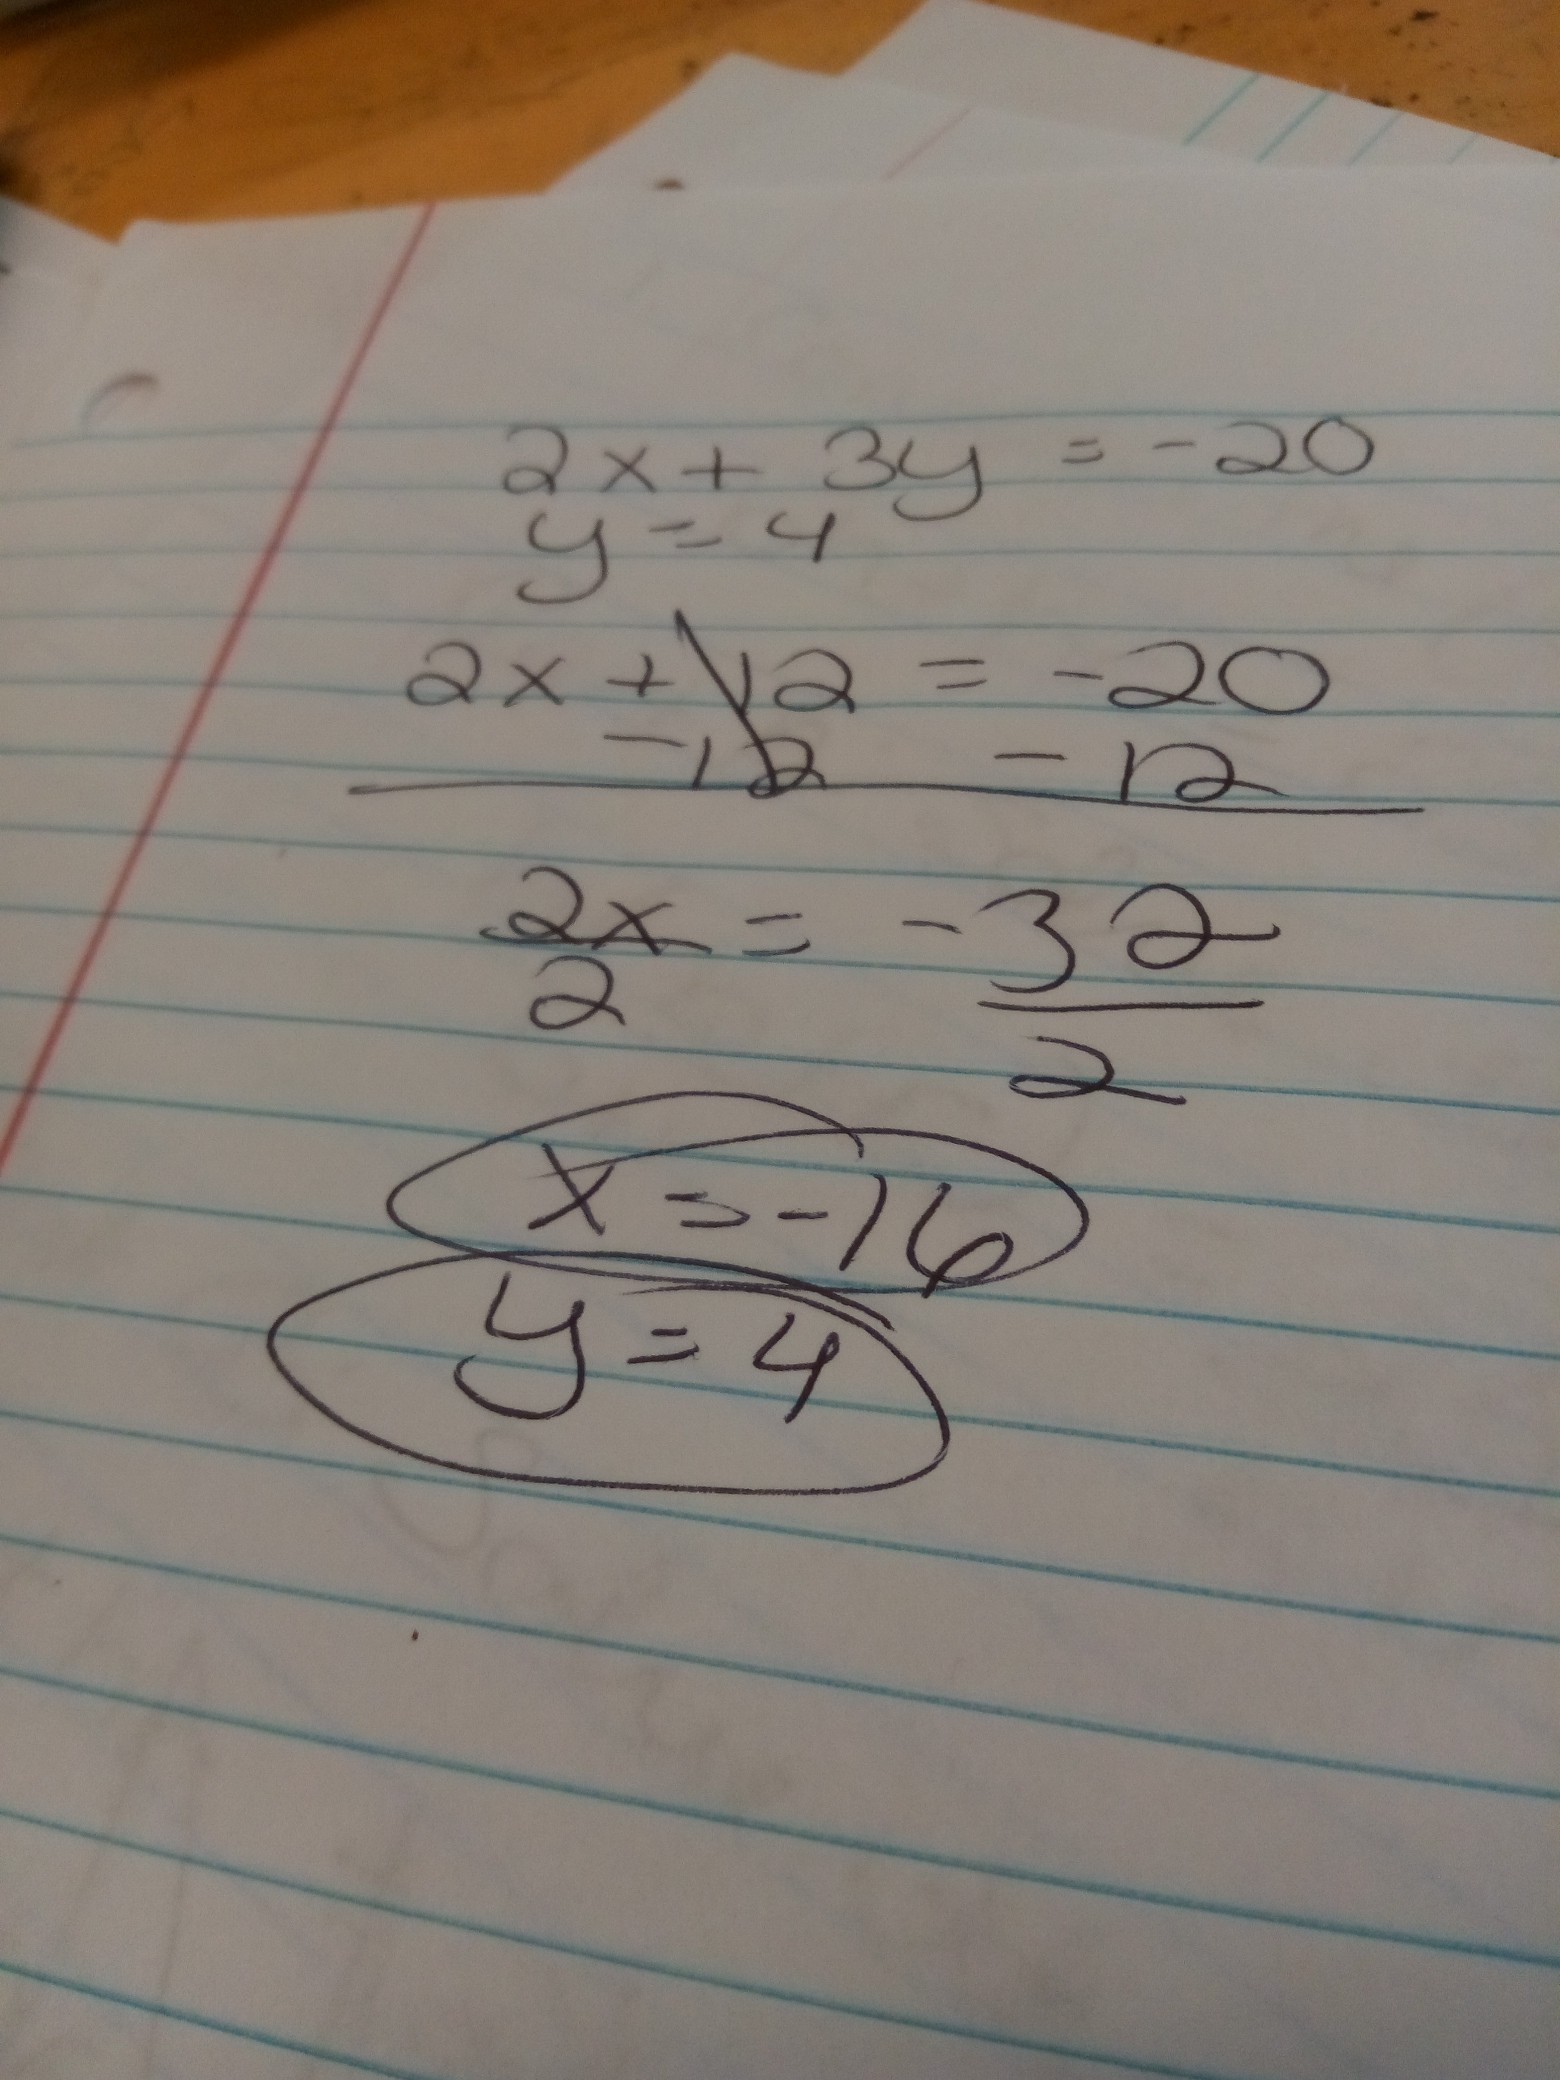 2x + 3y = -20
y = 4
2x + 12 = -20
-12 -12
2x = -32
2 2
x = -16
y = 4